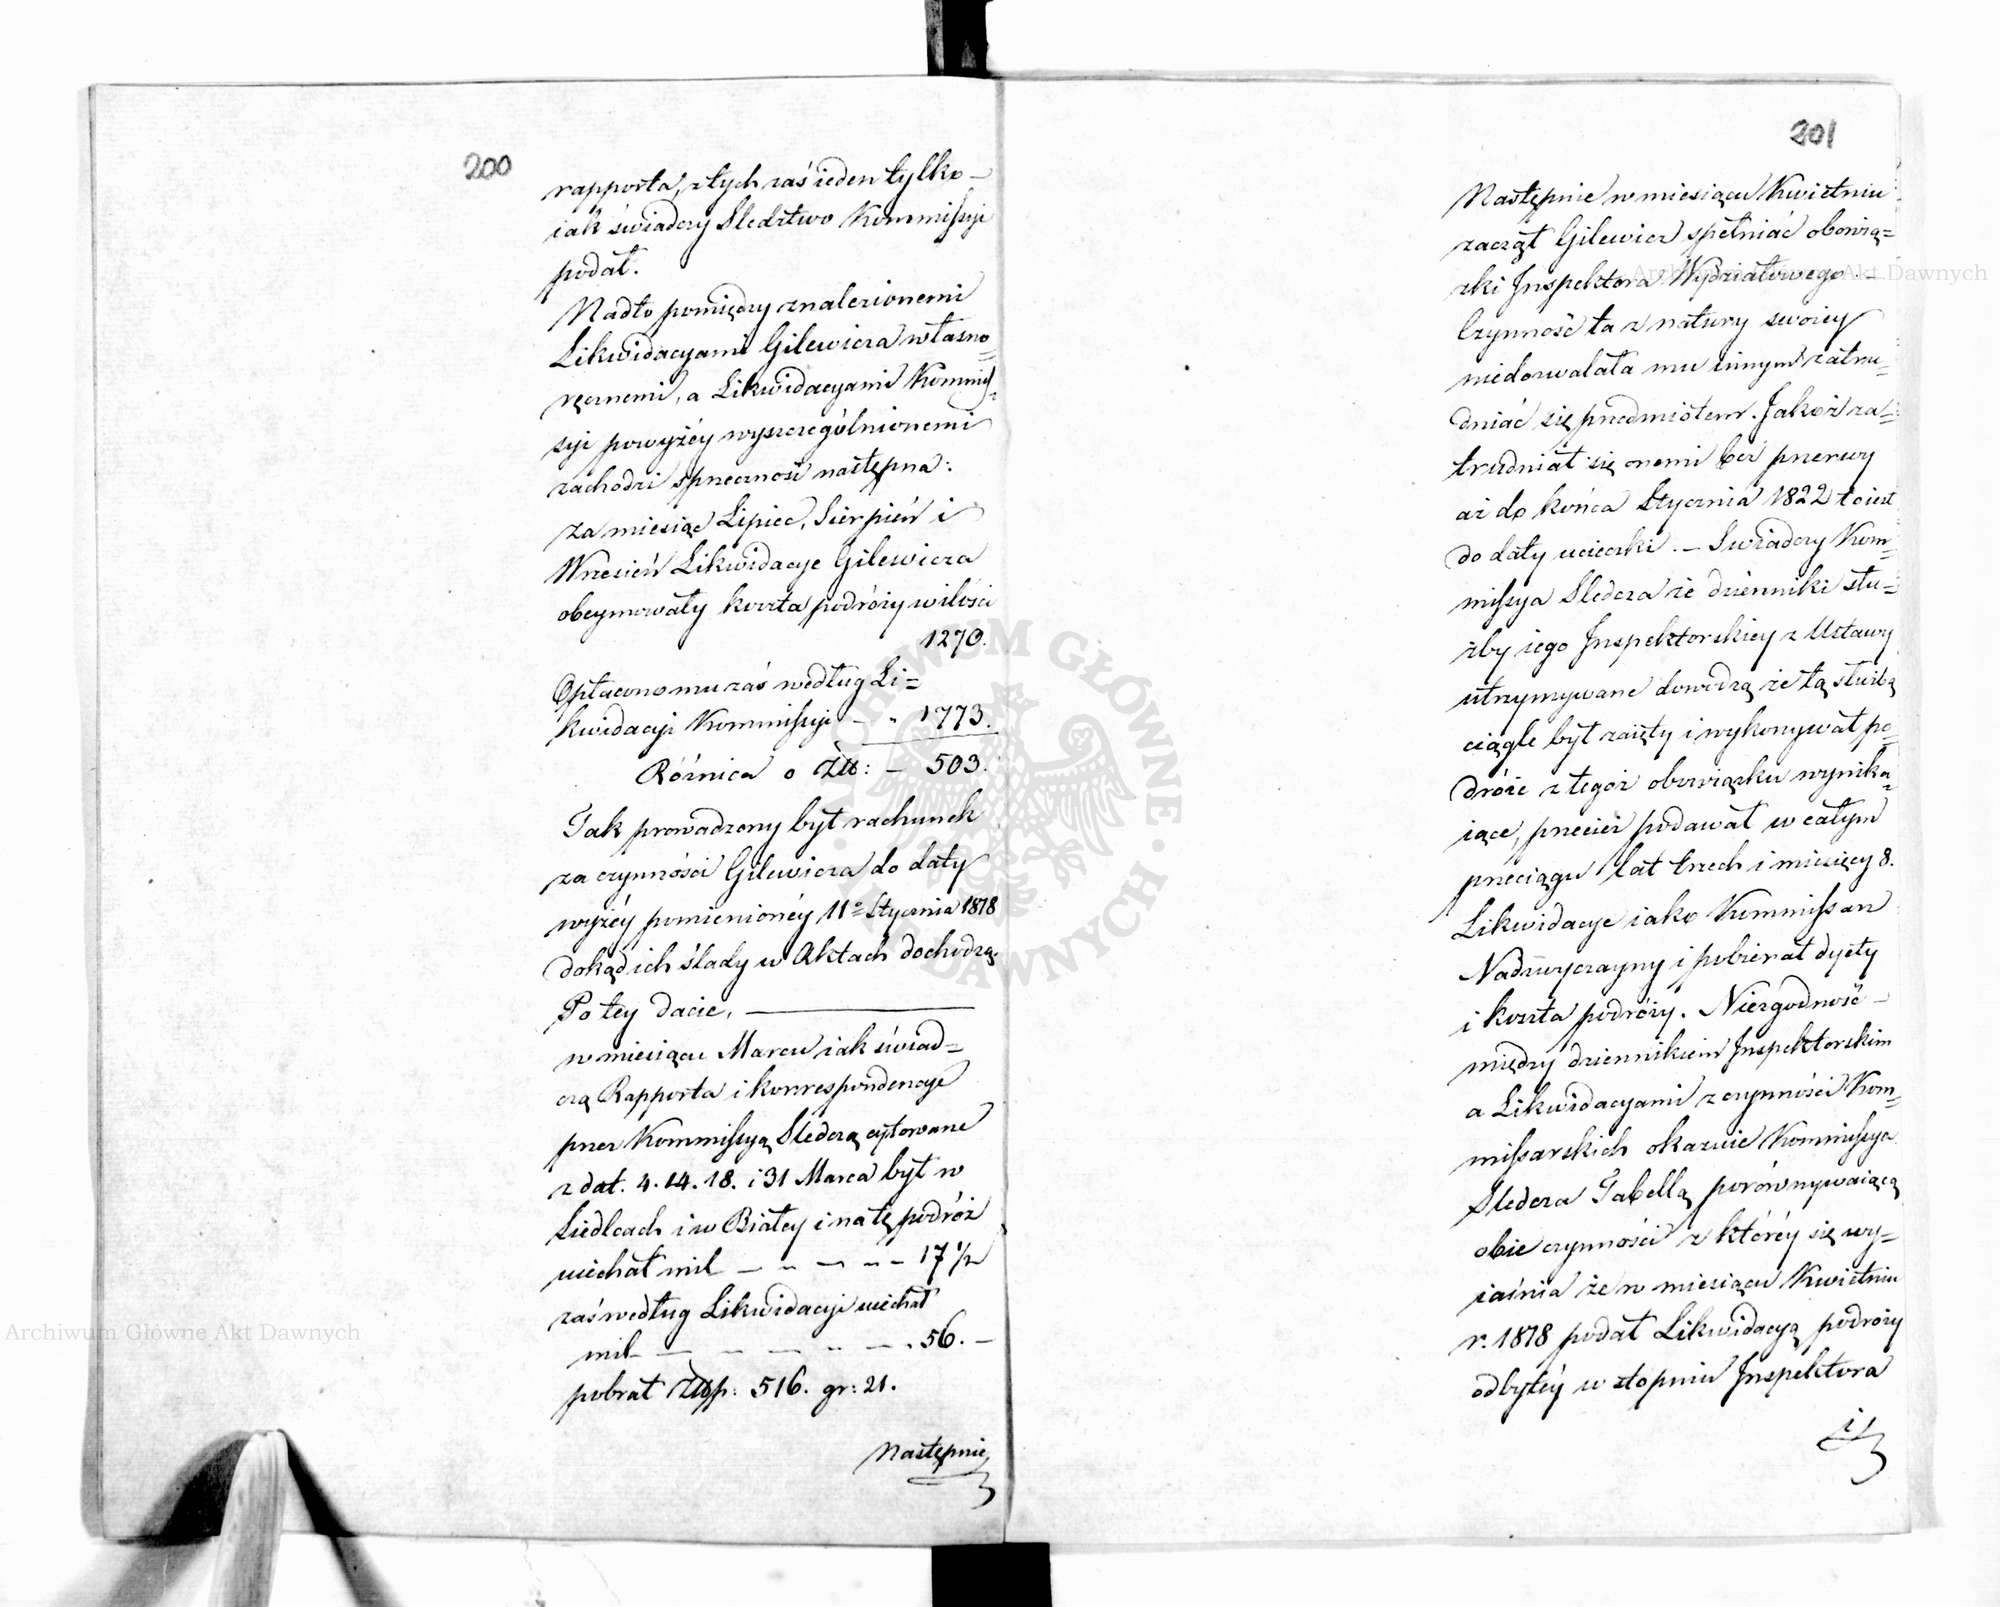 200
rapporta, z tych zaś ieden tylko –
iak świadczy Sledztwo Kommissyi
podał.
Nadto pomiędzy znalezionemi
Likwidacyami Gilewicza własno=
ręcznemi, a Likwidacyami Kommis=
syi powyżéy wyszczególnionemi
zachodzi sprzeczność następna:
Za miesiąc Lipiec, Sierpień i
Wrzesień Likwidacye Gilewicza
obeymowały koszta podróży w ilości
1270.
Opłacono mu zaś według Li=
kwidacyi Kommissyi – „ 1773.
Różnica o Złł: – 503.
Tak prowadzony był rachunek
za czynności Gilewicza do daty
wyżéy pomienionéy 11º Stycznia 1818
dokąd ich ślady w Aktach dochodzą.
Po tey dacie,
w miesiącu Marcu iak świad=
czą Rapporta i korrespondencye
przez Kommissyą Sledczą cytowane
z dat. 4. 14. 18. i 31 Marca był w
Siedlcach i w Białey i na tę podróż
uiechał mil – „ – „ – 17 1/2
zaś według Likwidacyi uiechał
mil – – „ – „ – „ 56. –
pobrał Złłp: 516. gr: 21.
Następnie
201
Następnie w miesiącu Kwietniu
zaczął Gilewicz spełniać obowią=
zki Inspektora Wydziałowego. –
Czynność ta z natury swoiey
niedozwalała mu innym zatru=
dniać się przedmiotem. Jakoż za=
trudniał się onemi bez przerwy
aż do końca Stycznia 1822 to iest
do daty ucieczki. – Swiadczy Kom=
missya Sledcza że dzienniki słu=
żby iego Inspektorskiey z Ustawy
utrzymywane dowodzą że tą służbą
ciągle był zaięty i wykonywał po=
dróże z tegoż obowiązku wynika=
iące, przecież podawał w całym
przeciągu lat trzech i miesięcy 8.
Likwidacye iako Kommissarz
Nadzwyczayny i pobierał dyety
i koszta podróży. Niezgodność –
między dziennikiem Inspektorskim
a Likwidacyami z czynności Kom=
missarskich okazuie Kommissya
Sledcza Tabellą porównywaiącą
obie czynności z któréy się wy=
iaśnia że w miesiącu Kwietniu
r. 1818 podał Likwidacyą podróży
odbytéy w stopniu Inspektora
i
Archiwum Główne Akt Dawnych
Archiwum Główne Akt Dawnych
ARCHIWUM GŁÓWNE AKT DAWNYCH